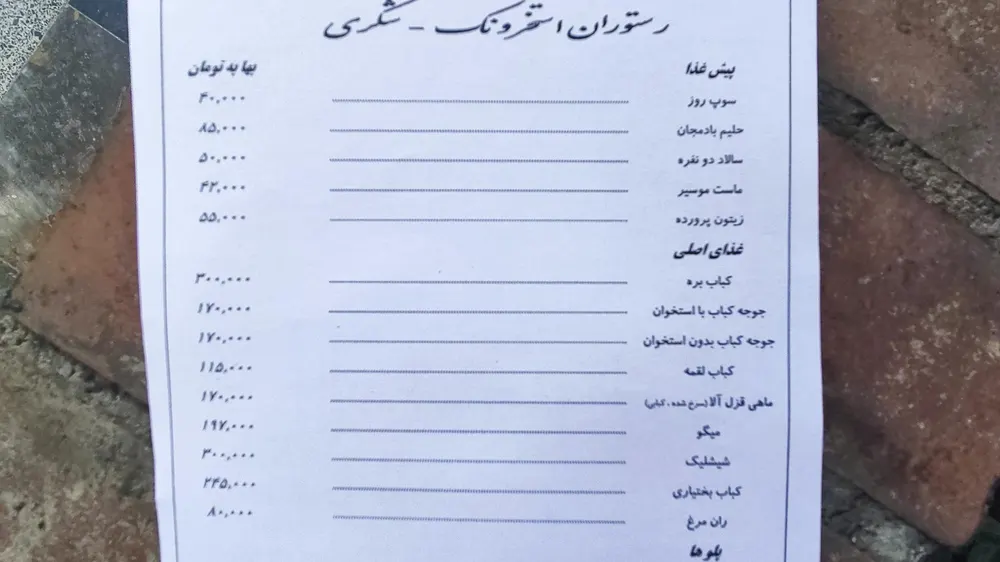 رستوران استخر ونک - شگری
پیش غذا بها به تومان
سوپ روز ۴۰,۰۰۰
حلیم بادمجان ۸۵,۰۰۰
سالاد دو نفره ۵۰,۰۰۰
ماست موسیر ۴۲,۰۰۰
زیتون پرورده ۵۵,۰۰۰
غذای اصلی
کباب بره ۳۰۰,۰۰۰
جوجه کباب با استخوان ۱۷۰,۰۰۰
جوجه کباب بدون استخوان ۱۷۰,۰۰۰
کباب لقمه ۱۱۵,۰۰۰
ماهی قزل آلا (سرخ شده ، کبابی) ۱۷۰,۰۰۰
میگو ۱۹۷,۰۰۰
شیشلیک ۳۰۰,۰۰۰
کباب بختیاری ۲۴۵,۰۰۰
ران مرغ ۸۰,۰۰۰
پلو ها